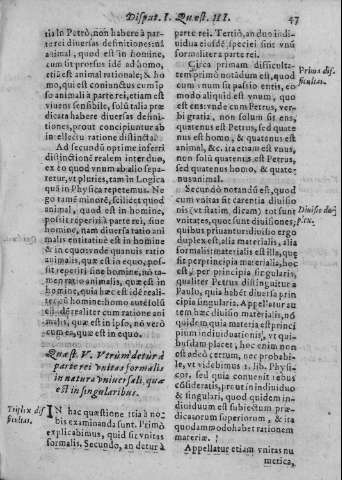 Disput. I. Quæst. III. 47
tia in Petrò, non habere à par-
te rei diuersas definitiones: nā
animal, quod est in homine,
cum sit prorsus idē ad homo,
etiā est animal rationale; & ho
mo, qui est coniunctus cum ip
so animali à parte rei, etiam est
viuens sensibile, solū talia præ
dicata habere diuersas defini-
tiones, prout concipiuntur ab
intellectu ratione distincta.
Ad secundū optime inferri
distinctionē realem inter duo,
ex eo quod vnum absq; sepa-
retur, vt pluries, tam in Logica
quā in Physica repetemus. Ne
go tamē minorē, scilicet quod
animal, quod est in homine,
possit reperiri à parte rei, sine
homine, nam diuersa ratio ani
malis entitatiuè est in homine
& in equo: vnde quanuis ratio
animalis, quæ est in equo, pos-
sit reperiri sine homine, nō ta-
men ratio animalis, quæ est in
homine, quia hæc est idē reali-
ter cū homine: homo autē solū
est idē realiter cum ratione ani
malis, quæ est in ipso, nō verò
cum ea, quæ est in equo.
Quæst. V. Verùm detur à
parte rei vnitas formalis
in natura vniuersali, quæ
est in singularibus.
Triplex dif
ficultas.
IN hac quæstione tria à no-
bis examinanda sunt. Primò
explicabimus, quid sit vnitas
formalis. Secundo, an detur à
parte rei. Tertiò, an duo indi-
uidua eiusdē, speciei sint vnū
formaliter à parte rei.
Circa primam difficulta-
tem primò notandum est, quod
cum vnum sit passio entis, eo
modo aliquid est vnum, quo
est ens: vnde cum Petrus, ver-
bi gratia, non solum sit ens,
quatenus est Petrus, sed quate
nus est homo, & quatenus est
animal, &c. ita etiam est vnus,
non solū quatenus est Petrus,
sed quatenus homo, & quate-
nus animal.
Prima dif-
ficultas.
Secundò notandū est, quod
cum vnitas sit carentia diuisio
nis (vt statim, dicam) tot sunt
vnitates, quot sunt diuisiones,
quibus priuantur: diuisio ergo
duplex est, alia materialis, alia
formalis: materialis est illa, quæ
fit per principia materialia, hoc
est, per principia singularis,
qualiter Petrus distinguitur à
Paulo, quia habēt diuersa prin
cipia singularia. Appellatur au
tem hæc diuisio materialis, nō
quidem, quia materia est princi
pium indiuiduationis, vt qui-
busdam placet, hoc enim non
est adeò certum, nec probabi-
le, vt videbimus 1. lib. Physi-
cor. sed quia conuenit rebus
cōsideratis, prout in indiuiduo
& singulari, quod quidem in-
diuiduum est subiectum præ-
dicatorum superiorum, & ita
quodammodo habet rationem
materiæ.
Diuisio du
plex.
Appellatur etiam vnitas nu
merica,